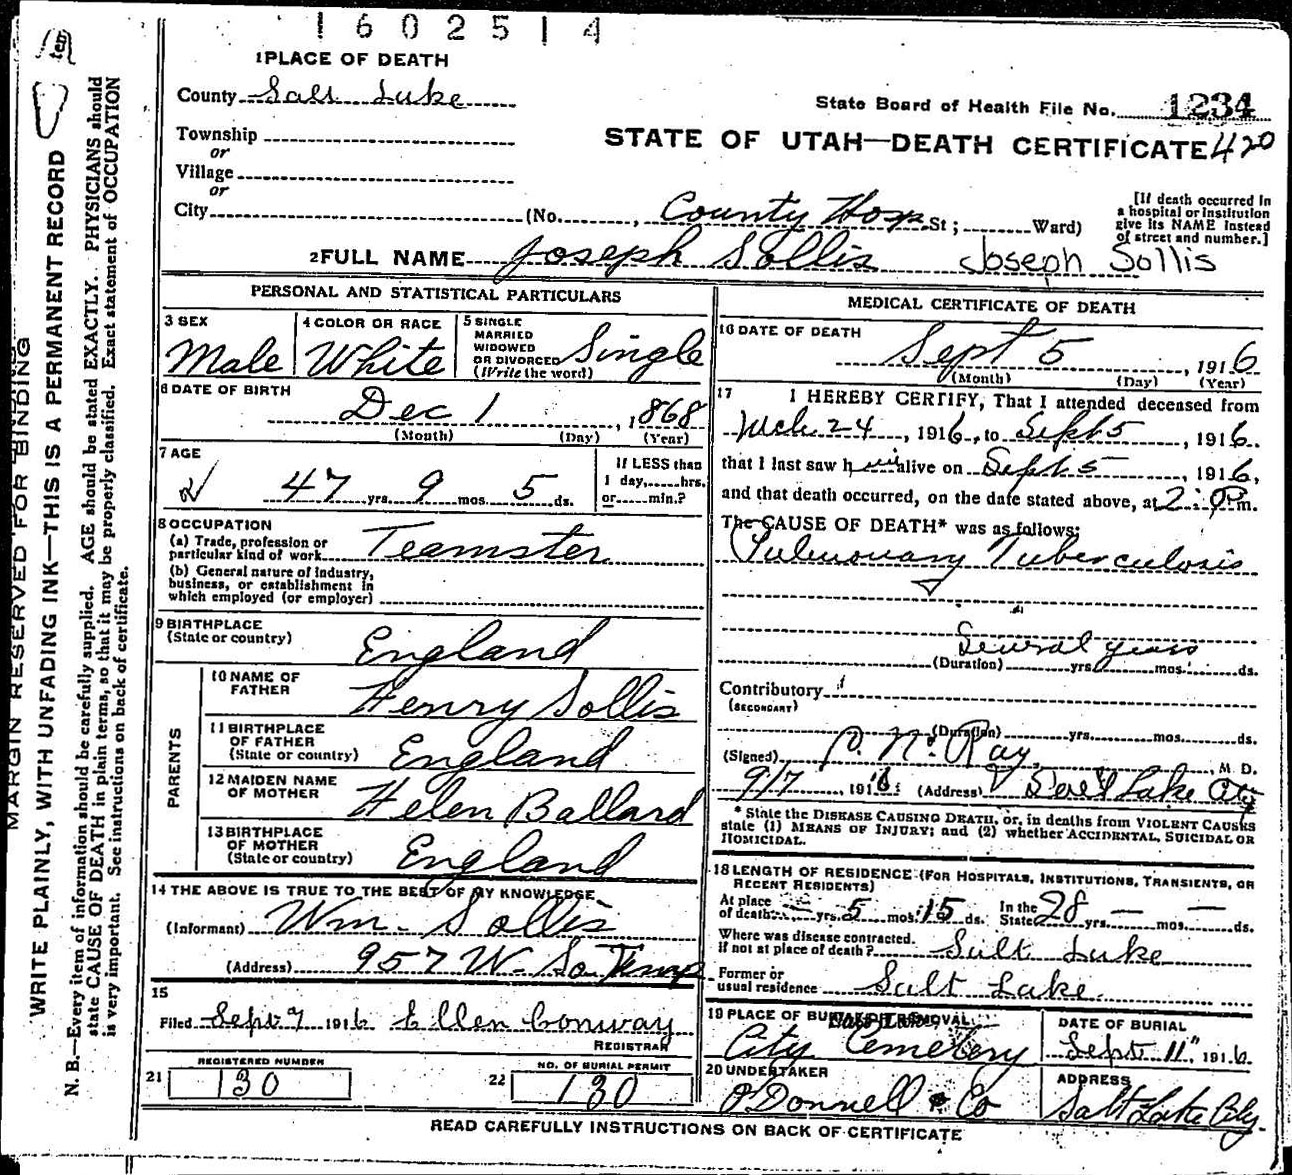 1602514
1 PLACE OF DEATH
County Salt Lake
State Board of Health File No. 1234
Township
or
STATE OF UTAH—DEATH CERTIFICATE 420
Village
or
City (No. , County Hosp. St; Ward)
[If death occurred in
a hospital or institution
give its NAME instead
of street and number.]
2 FULL NAME Joseph Sollis Joseph Sollis
PERSONAL AND STATISTICAL PARTICULARS
3 SEX
Male
4 COLOR OR RACE
White
5 SINGLE
MARRIED
WIDOWED
OR DIVORCED
(Write the word)
Single
6 DATE OF BIRTH
Dec 1, 1868
(Month) (Day) (Year)
7 AGE
47 yrs. 9 mos. 5 ds.
If LESS than
1 day, hrs.
or min.?
8 OCCUPATION
(a) Trade, profession or
particular kind of work Teamster
(b) General nature of industry,
business, or establishment in
which employed (or employer)
9 BIRTHPLACE
(State or country) England
PARENTS
10 NAME OF
FATHER Henry Sollis
11 BIRTHPLACE
OF FATHER
(State or country) England
12 MAIDEN NAME
OF MOTHER Helen Ballard
13 BIRTHPLACE
OF MOTHER
(State or country) England
14 THE ABOVE IS TRUE TO THE BEST OF MY KNOWLEDGE
(Informant) Wm. Sollis
(Address) 957 W. So. Temp
15
Filed Sept 7 1916 Ellen Conway
REGISTRAR
21 REGISTERED NUMBER
130
22 NO. OF BURIAL PERMIT
130
MEDICAL CERTIFICATE OF DEATH
16 DATE OF DEATH
Sept 5, 1916
(Month) (Day) (Year)
17 I HEREBY CERTIFY, That I attended deceased from
Mch 24, 1916, to Sept 5, 1916.
that I last saw him alive on Sept 5, 1916,
and that death occurred, on the date stated above, at 2: P.m.
The CAUSE OF DEATH* was as follows:
Pulmonary Tuberculosis
Several years
(Duration) yrs. mos. ds.
Contributory
(SECONDARY)
(Duration) yrs. mos. ds.
(Signed) P. N. Ray, M. D.
9/7, 1916. (Address) Salt Lake City
* State the DISEASE CAUSING DEATH, or, in deaths from VIOLENT CAUSES
state (1) MEANS OF INJURY; and (2) whether ACCIDENTAL, SUICIDAL OR
HOMICIDAL.
18 LENGTH OF RESIDENCE (FOR HOSPITALS, INSTITUTIONS, TRANSIENTS, OR
RECENT RESIDENTS)
At place
of death — yrs. 5 mos. 15 ds. In the
State 28 yrs. — mos. — ds.
Where was disease contracted.
if not at place of death? Salt Lake
Former or
usual residence Salt Lake
19 PLACE OF BURIAL OR REMOVAL
City Cemetery
DATE OF BURIAL
Sept 11", 1916.
20 UNDERTAKER
O'Donnell & Co
ADDRESS
Salt Lake City.
READ CAREFULLY INSTRUCTIONS ON BACK OF CERTIFICATE
MARGIN RESERVED FOR BINDING
WRITE PLAINLY, WITH UNFADING INK—THIS IS A PERMANENT RECORD
N. B.—Every item of information should be carefully supplied. AGE should be stated EXACTLY. PHYSICIANS should
state CAUSE OF DEATH in plain terms, so that it may be properly classified. Exact statement of OCCUPATION
is very important. See instructions on back of certificate.